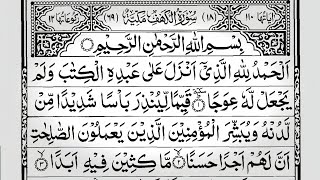 اٰیَاتُهَا ۱۱۰ (۱۸) سُوْرَةُ الْكَهْفِ مَكِّیَّةٌ (۶۹) رُكُوْعَاتُهَا ۱۲
بِسْمِ اللّٰهِ الرَّحْمٰنِ الرَّحِیْمِ
اَلْحَمْدُ لِلّٰهِ الَّذِیْۤ اَنْزَلَ عَلٰى عَبْدِهِ الْكِتٰبَ وَلَمْ
یَجْعَلْ لَّهٗ عِوَجًا ۱ قَیِّمًا لِّیُنْذِرَ بَاْسًا شَدِیْدًا مِّنْ
لَّدُنْهُ وَیُبَشِّرَ الْمُؤْمِنِیْنَ الَّذِیْنَ یَعْمَلُوْنَ الصّٰلِحٰتِ
اَنَّ لَهُمْ اَجْرًا حَسَنًا ۲ مَّاكِثِیْنَ فِیْهِ اَبَدًا ۳